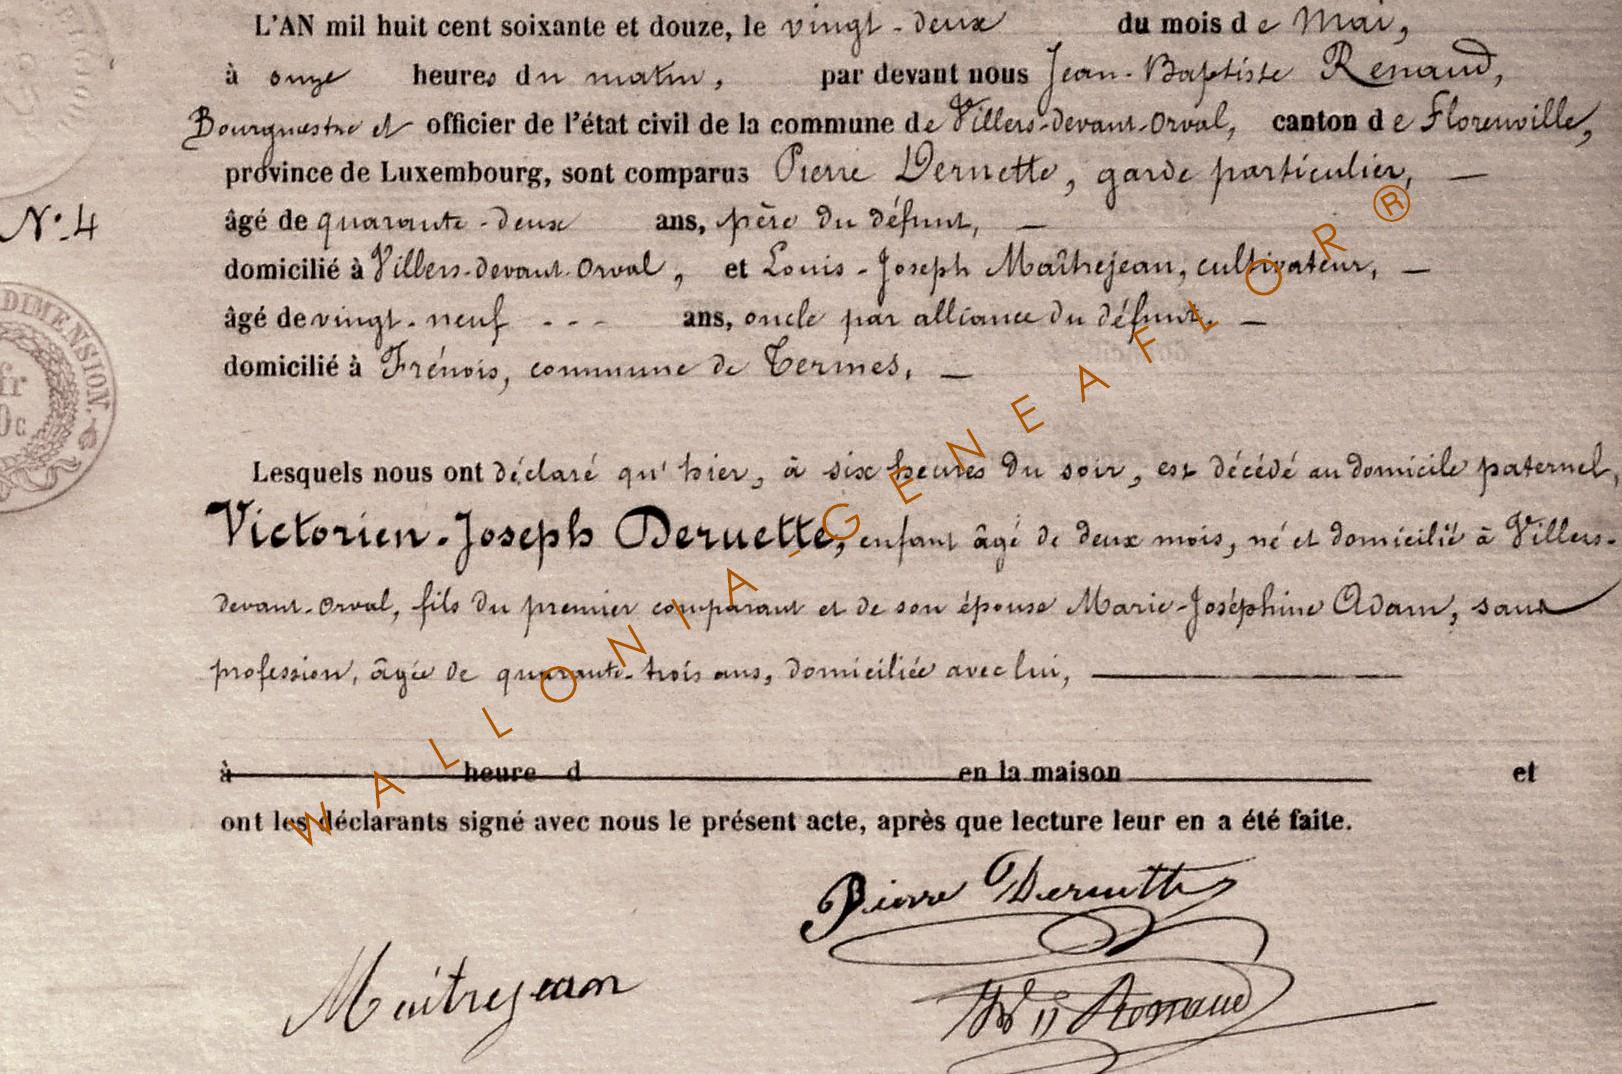 L'AN mil huit cent soixante et douze, le vingt-deux du mois de Mai,
à onze heures du matin, par devant nous Jean-Baptiste Renaud,
Bourgmestre et officier de l'état civil de la commune de Villers-devant-Orval, canton de Florenville,
province de Luxembourg, sont comparus Pierre Deruette, garde particulier, —
N° 4
âgé de quarante-deux ans, père du défunt, —
domicilié à Villers-devant-Orval, et Louis-Joseph Maîtrejean, cultivateur, —
âgé de vingt-neuf - - - ans, oncle par alliance du défunt, —
domicilié à Frénois, commune de Termes, —
DIMENSION.
fr
0c
Lesquels nous ont déclaré qu'hier, à six heures du soir, est décédé au domicile paternel,
Victorien-Joseph Deruette, enfant âgé de deux mois, né et domicilié à Villers-
devant-Orval, fils du premier comparant et de son épouse Marie-Joséphine Adam, sans
profession, âgée de quarante-trois ans, domiciliée avec lui, —
à heure d en la maison et
ont les déclarants signé avec nous le présent acte, après que lecture leur en a été faite.
Pierre Deruette
Maitrejean
Renaud
WALLONIA-GENEAFLOR®